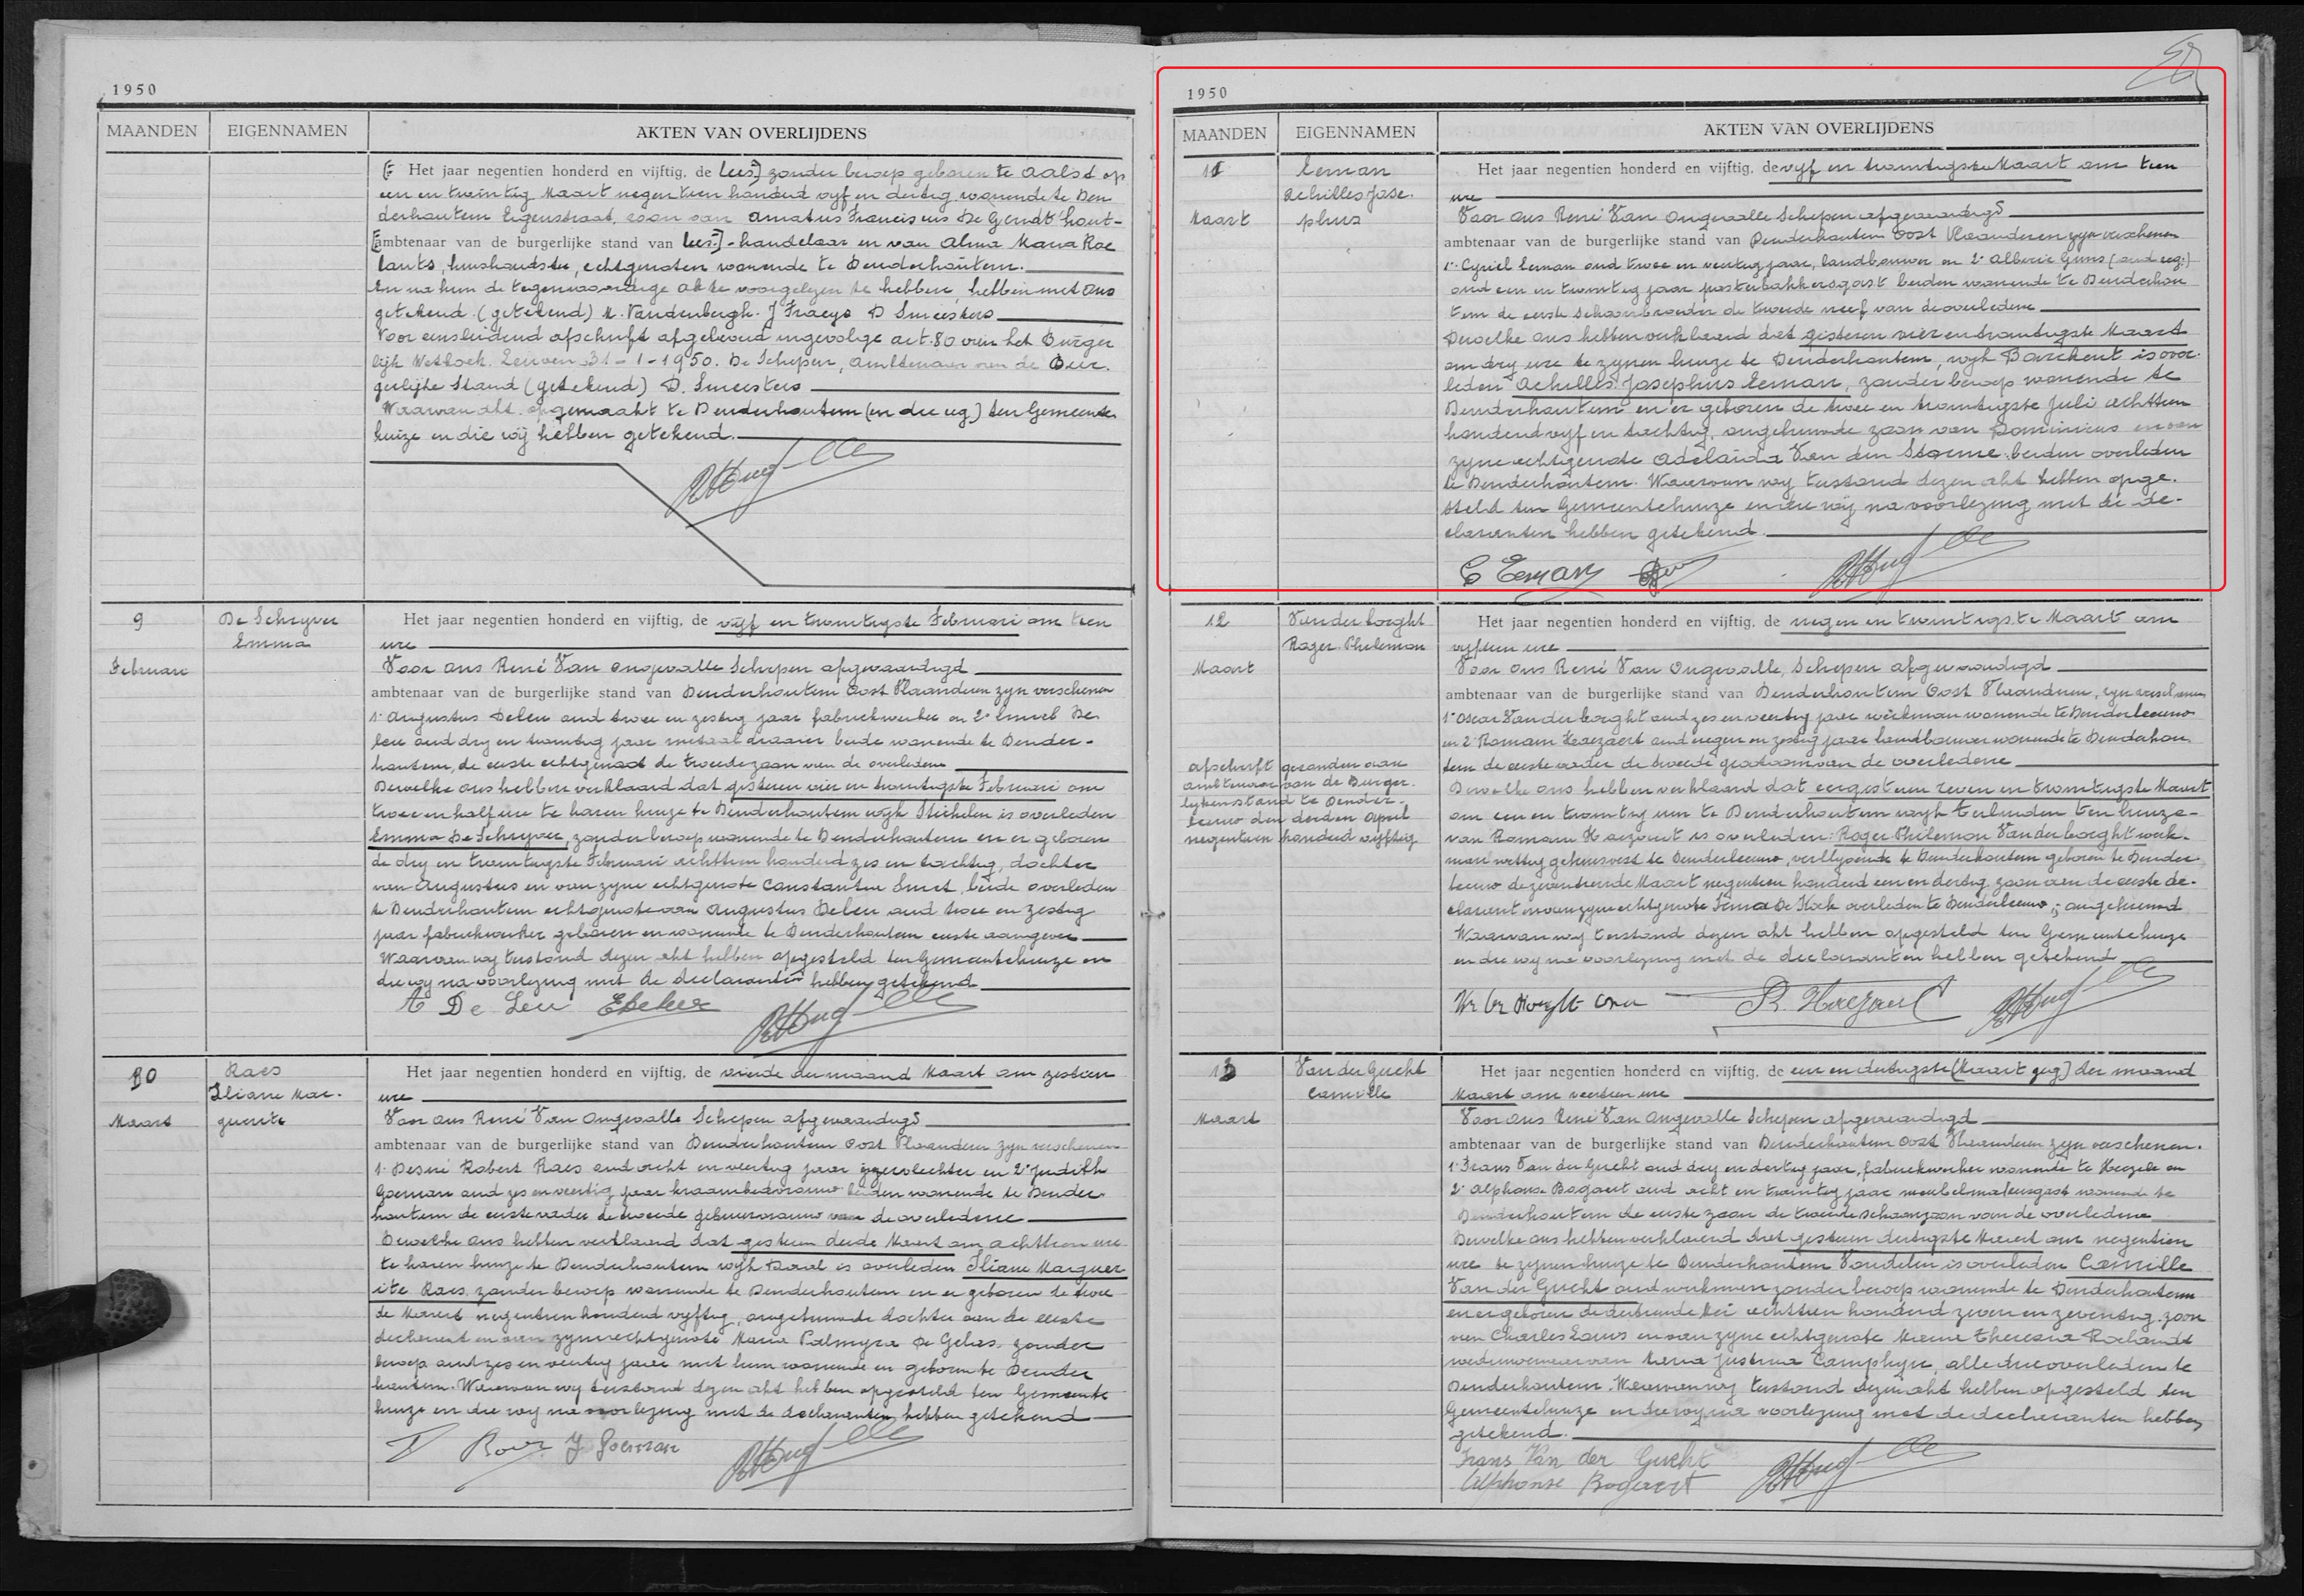 1950
MAANDEN
EIGENNAMEN
AKTEN VAN OVERLIJDENS
Het jaar negentien honderd en vijftig, de lees] zonder beroep geboren te Aalst op
een en twintig Maart negentien honderd vyf en dertig wonende te Den
derhoutem Eigenstraat, zoon van Amatus Franciscus De Gendt hout-
ambtenaar van de burgerlijke stand van lees] - handelaar en van Alma Maria Roe
lants, huishoudster, echtgenoten wonende te Denderhoutem.
En na hun de tegenwoordige akte voorgelezen te hebben, hebben met ons
getekend. (getekend) M. Vandenbergh. J Fraeys D Smeesters
Voor eensluidend afschrift afgeleverd ingevolge art. 80 van het Burger
lijk Wetboek. Leuven 31-1-1950. De Schepen, Ambtenaar van de Bur.
gerlijke Stand (getekend) D. Smeesters
Waarvan akt opgemaakt te Denderhoutem (en die reg) ten Gemeente
huize en die wij hebben getekend.
9
Februari
De Schryver
Emma
Het jaar negentien honderd en vijftig, de vyf en twintigste Februari om tien
ure
Voor ons René Van Ongevalle Schepen afgevaardigd
ambtenaar van de burgerlijke stand van Denderhoutem Oost Vlaanderen zyn verschenen
1° Augustus Deleu oud twee en zestig jaar fabriekwerker en 2° Emiel De
leu oud dry en twintig jaar metaaldraaier beide wonende te Dender-
houtem, de eerste echtgenoot de tweede zoon van de overledene
Dewelke ons hebben verklaard dat gisteren vier en twintigste Februari om
twee en half ure te haren huize te Denderhoutem wyk Stichelen is overleden
Emma De Schryver, zonder beroep wonende te Denderhoutem en er geboren
de dry en twintigste Februari achttien honderd zes en tachtig, dochter
van Augustus en van zyne echtgenote Constantia Smet, beide overleden
te Denderhoutem echtgenote van Augustus Deleu oud twee en zestig
jaar fabriekwerker geboren en wonende te Denderhoutem eerste aangever
Waarvan wy terstond dezen akt hebben opgesteld ten Gemeentehuize en
die wy na voorlezing met de declaranten hebben getekend
A De Leu E Deleu
10
Maart
Raes
Iliane Mar.
guerite
Het jaar negentien honderd en vijftig, de vierde der maand Maart om zestien
ure
Voor ons René Van Ongevalle Schepen afgevaardigd
ambtenaar van de burgerlijke stand van Denderhoutem Oost Vlaanderen zyn verschenen
1. Desiré Robert Raes oud acht en veertig jaar yzervlechter en 2° Judith
Goeman oud zes en veertig jaar kraambedvrouw beiden wonende te Dender-
houtem de eerste vader de tweede gebuurvrouw van de overledene
Dewelke ons hebben verklaard dat gisteren derde Maart om achttien ure
te haren huize te Denderhoutem wyk Daal is overleden Iliane Marguer
ite Raes, zonder beroep wonende te Denderhoutem en er geboren de twee
de Maart negentien honderd vyftig, ongehuwde dochter van de eerste
declarant en van zyne echtgenote Maria Palmyra De Gelas. zonder
beroep oud zes en veertig jaar met hem wonende en geboren te Dender
houtem. Waarvan wy terstond dezen akt hebben opgesteld ten Gemeente
huize en die wy na voorlezing met de declaranten hebben getekend
J Goeman
1950
MAANDEN
EIGENNAMEN
AKTEN VAN OVERLIJDENS
11
Maart
Eeman
Achilles Jose.
phus
Het jaar negentien honderd en vijftig, de vyf en twintigste Maart om tien
ure
Voor ons René Van Ongevalle Schepen afgevaardigd
ambtenaar van de burgerlijke stand van Denderhoutem Oost Vlaanderen zyn verschenen
1° Cyriel Eeman oud twee en veertig jaar, landbouwer en 2° Alberic Gins (oud reg.)
oud een en twintig jaar pasteibakkersgast beiden wonende te Denderhou
tem de eerste schoonbroeder de tweede neef van de overledene
Dewelke ons hebben verklaard dat gisteren vier en twintigste Maart
om dry ure te zynen huize te Denderhoutem, wyk Borekent is over-
leden Achilles Josephus Eeman, zonder beroep wonende te
Denderhoutem en er geboren de twee en twintigste Juli achttien
honderd vyf en tachtig, ongehuwde zoon van Dominicus en van
zyne echtgenote Adelaida Van den Storme beiden overleden
te Denderhoutem. Waarvan wy terstond dezen akt hebben opge.
steld ten Gemeentehuize en die wij na voorlezing met de de-
claranten hebben getekend.
C Eeman
12
Maart
Vanderborght
Roger Philemon
afschrift gezonden aan
ambtenaar van de Burger.
lyken stand te Dender.
leeuw den derden April
negentien honderd vyftig
Het jaar negentien honderd en vijftig, de negen en twintigste Maart om
vyftien ure
Voor ons René Van Ongevalle, Schepen afgevaardigd
ambtenaar van de burgerlijke stand van Denderhoutem Oost Vlaanderen, zyn verschenen
1° Oscar Vanderborght oud zes en veertig jaar werkman wonende te Denderleeuw
en 2° Romain Haezaert oud negen en zestig jaar landbouwer wonende te Denderhou
tem de eerste vader de tweede grootoom van de overledene
Dewelke ons hebben verklaard dat eergisteren zeven en twintigste Maart
om een en twintig uren te Denderhoutem wyk Terlinden ten huize
van Romain Haezaert is overleden: Roger Philemon Vanderborght werk-
man wettig gehuisvest te Denderleeuw, verblyvende te Denderhoutem geboren te Dender
leeuw de zeventiende Maart negentien honderd een en dertig, zoon van de eerste de-
clarant en van zyne echtgenote Irma De Hoek overleden te Denderleeuw; ongehuwd
Waarvan wy terstond dezen akt hebben opgesteld ten Gemeentehuize
en die wy na voorlezing met de declaranten hebben getekend
R. Haezaert
13
Maart
Van der Gucht
Camille
Het jaar negentien honderd en vijftig, de een en dertigste (Maart geg) der maand
Maart om veertien ure
Voor ons René Van Ongevalle Schepen afgevaardigd
ambtenaar van de burgerlijke stand van Denderhoutem Oost Vlaanderen zyn verschenen.
1° Frans Van der Gucht oud dry en dertig jaar, fabriekwerker wonende te Herzele en
2° Alphonse Bogaert oud acht en twintig jaar meubelmakersgast wonende te
Denderhoutem de eerste zoon de tweede schoonzoon van de overledene
Dewelke ons hebben verklaard dat gisteren dertigste Maart om negentien
ure te zynen huize te Denderhoutem Vondelen is overleden Camille
Van der Gucht oud werkman zonder beroep wonende te Denderhoutem
en er geboren de dertiende Mei achttien honderd zeven en zeventig, zoon
van Charles Louis en van zyne echtgenote Maria Theresia Roelandt
weduwenaar van Maria Justina Camphyn, alle drie overleden te
Denderhoutem. Waarvan wy terstond dezen akt hebben opgesteld ten
Gemeentehuize en die wy na voorlezing met de declaranten hebben
getekend.
Frans Van der Gucht
Alphonse Bogaert